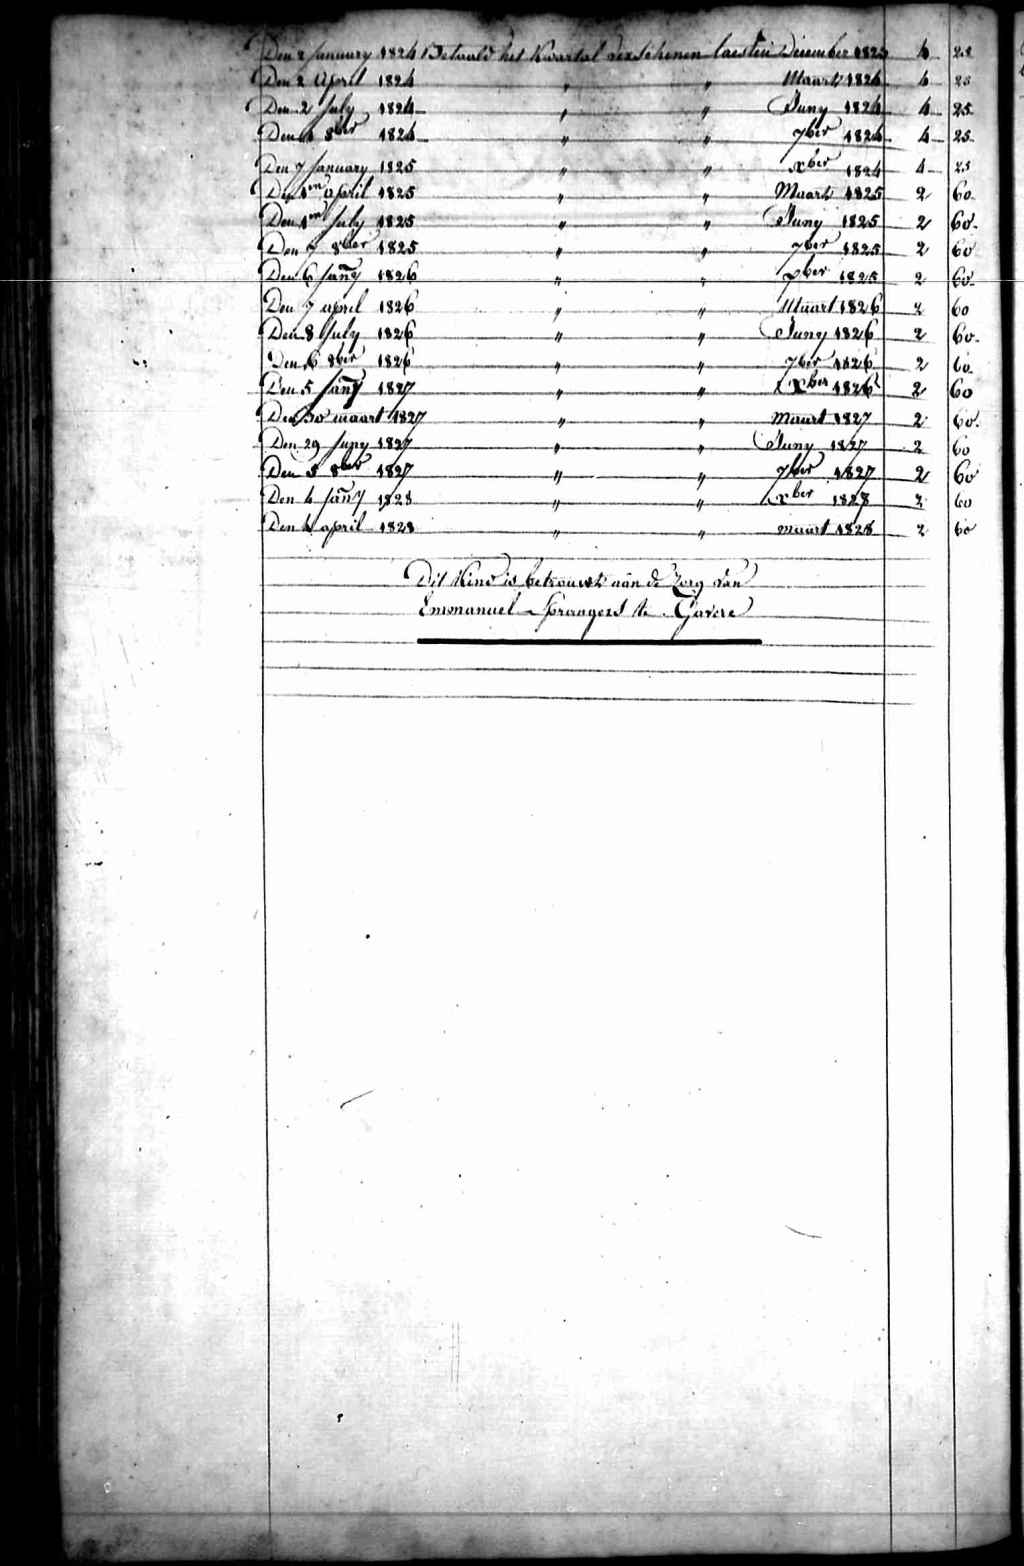 Den 2 January 1824 Betaald het Kwartal verschenen laesten December 1823 4 25
Den 2 April 1824 " " Maart 1824 4 25
Den 2 July 1824 " " Juny 1824 4 25
Den 8ber 1824 " " 7ber 1824 4 25
Den 7 January 1825 " " xber 1824 4 25
Den 1en april 1825 " " Maart 1825 2 60
Den 1en July 1825 " " Juny 1825 2 60
Den 7 8ber 1825 " " 7ber 1825 2 60
Den 6 Jany 1826 " " xber 1825 2 60
Den 7 april 1826 " " Maart 1826 2 60
Den 8 July 1826 " " Juny 1826 2 60
Den 6 8ber 1826 " " 7ber 1826 2 60
Den 5 Jany 1827 " " Xber 1826 2 60
Den 30 maart 1827 " " maart 1827 2 60
Den 29 Juny 1827 " " Juny 1827 2 60
Den 5 8ber 1827 " " 7ber 1827 2 60
Den 4 Jany 1828 " " xber 1828 2 60
Den 4 april 1828 " " maart 1828 2 60
Dit Kind is betrouwt aan de Zorg van
Emmanuel Sprangers te Gavere